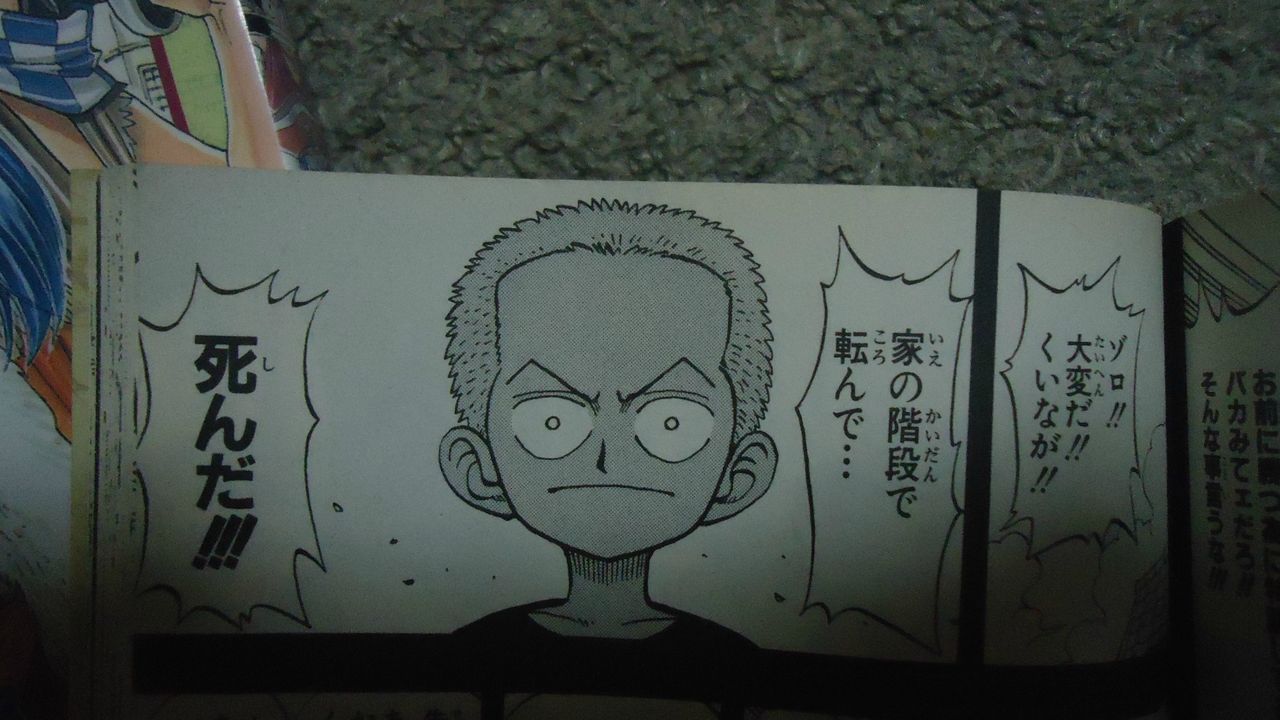 お前に勝つ
バカみてェだろ!!
そんな事言うな!!!
ゾロ!!
大変だ!!
くいなが!!
家の階段で
転んで…
死んだ!!!